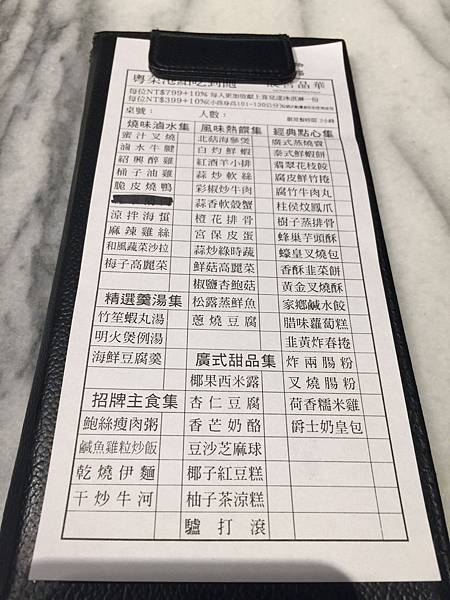 粵菜港點吃到飽
品華
每位NT$799+10% 每人更加值獻上喜見達冰淇淋一份
每位NT$399+10%(小孩身高101-130公分
桌號： 人數： 2小時
燒味滷水集
蜜汁叉燒
滷水牛腱
紹興醉雞
桶子油雞
脆皮燒鴨
涼拌海蜇
麻辣雞絲
和風蔬菜沙拉
梅子高麗菜
精選羹湯集
竹笙蝦丸湯
明火煲例湯
海鮮豆腐羹
招牌主食集
鮑絲瘦肉粥
鹹魚雞粒炒飯
乾燒伊麵
干炒牛河
風味熱饌集
北菇海參煲
白灼鮮蝦
紅酒羊小排
蒜炒軟絲
彩椒炒牛肉
蒜香軟殼蟹
橙花排骨
宮保皮蛋
蒜炒綠時蔬
鮮菇高麗菜
椒鹽杏鮑菇
松露蒸鮮魚
蔥燒豆腐
廣式甜品集
椰果西米露
杏仁豆腐
香芒奶酪
豆沙芝麻球
椰子紅豆糕
柚子茶涼糕
驢打滾
經典點心集
廣式蒸燒賣
泰式鮮蝦餅
翡翠花枝餃
腐皮鮮竹捲
腐竹牛肉丸
柱侯炆鳳爪
樹子蒸排骨
蜂巢芋頭酥
蠔皇叉燒包
香酥韭菜餅
黃金叉燒酥
家鄉鹹水餃
腊味蘿蔔糕
韭黃炸春捲
炸兩腸粉
叉燒腸粉
荷香糯米雞
爵士奶皇包